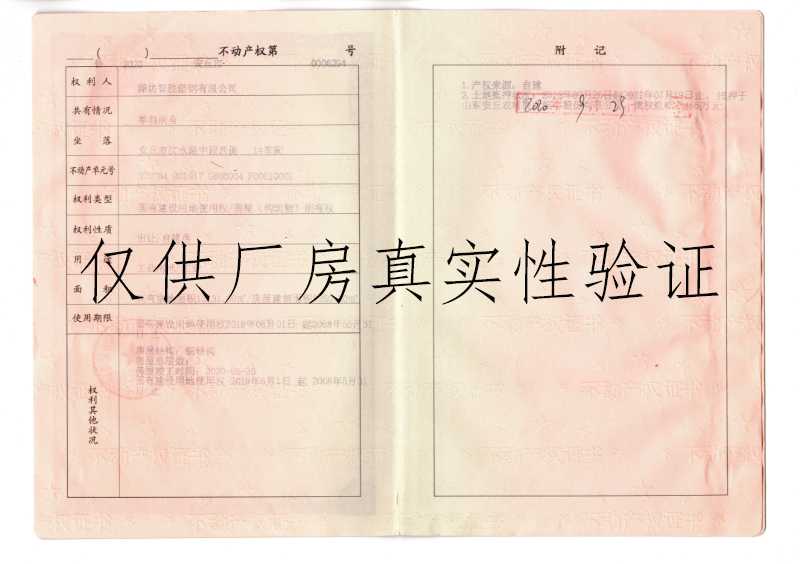 ( 2020 ) 安丘市 不动产权第 0006294 号
权利人 潍坊智胜塑钢有限公司
共有情况 单独所有
坐落 安丘市汶水路中段西侧 1#车间
不动产单元号 370784 001017 GB00004 F00010001
权利类型 国有建设用地使用权/房屋(构筑物)所有权
权利性质 出让/自建房
用
面积
使用期限 国有建设用地使用权2018年06月01日 起2068年05月31
日 止
权利其他状况
房屋结构:钢结构
房屋总层数:3
房屋竣工时间:2020-05-20
国有建设用地使用权 2018年6月1日 起 2068年5月31
日 止
附记
1.产权来源:自建
2.土地抵押 2021年07月19日止,抵押于
山东安丘农 债权数额 万元。
2020 9 23
仅供厂房真实性验证